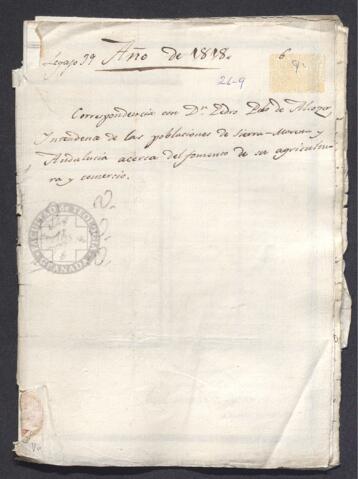 Legajo 99 Año de 1818. 6
9.
26-9
Correspondencia con Dn. Pedro Polo de Alcozer
Intendente de las poblaciones de Sierra-Morena y
Andalucia acerca del fomento de su agricultu-
ra y comercio.
FACULTAD DE TEOLOGIA
GRANADA